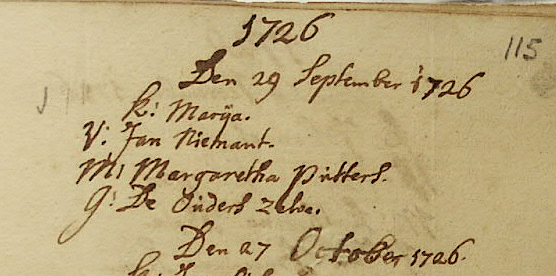 1726
115
Den 29 September 1726
k: Marÿa.
V: Jan Niemant.
M: Margaretha Putters.
G: De Ouders zelve.
Den 27 October 1726.
k: